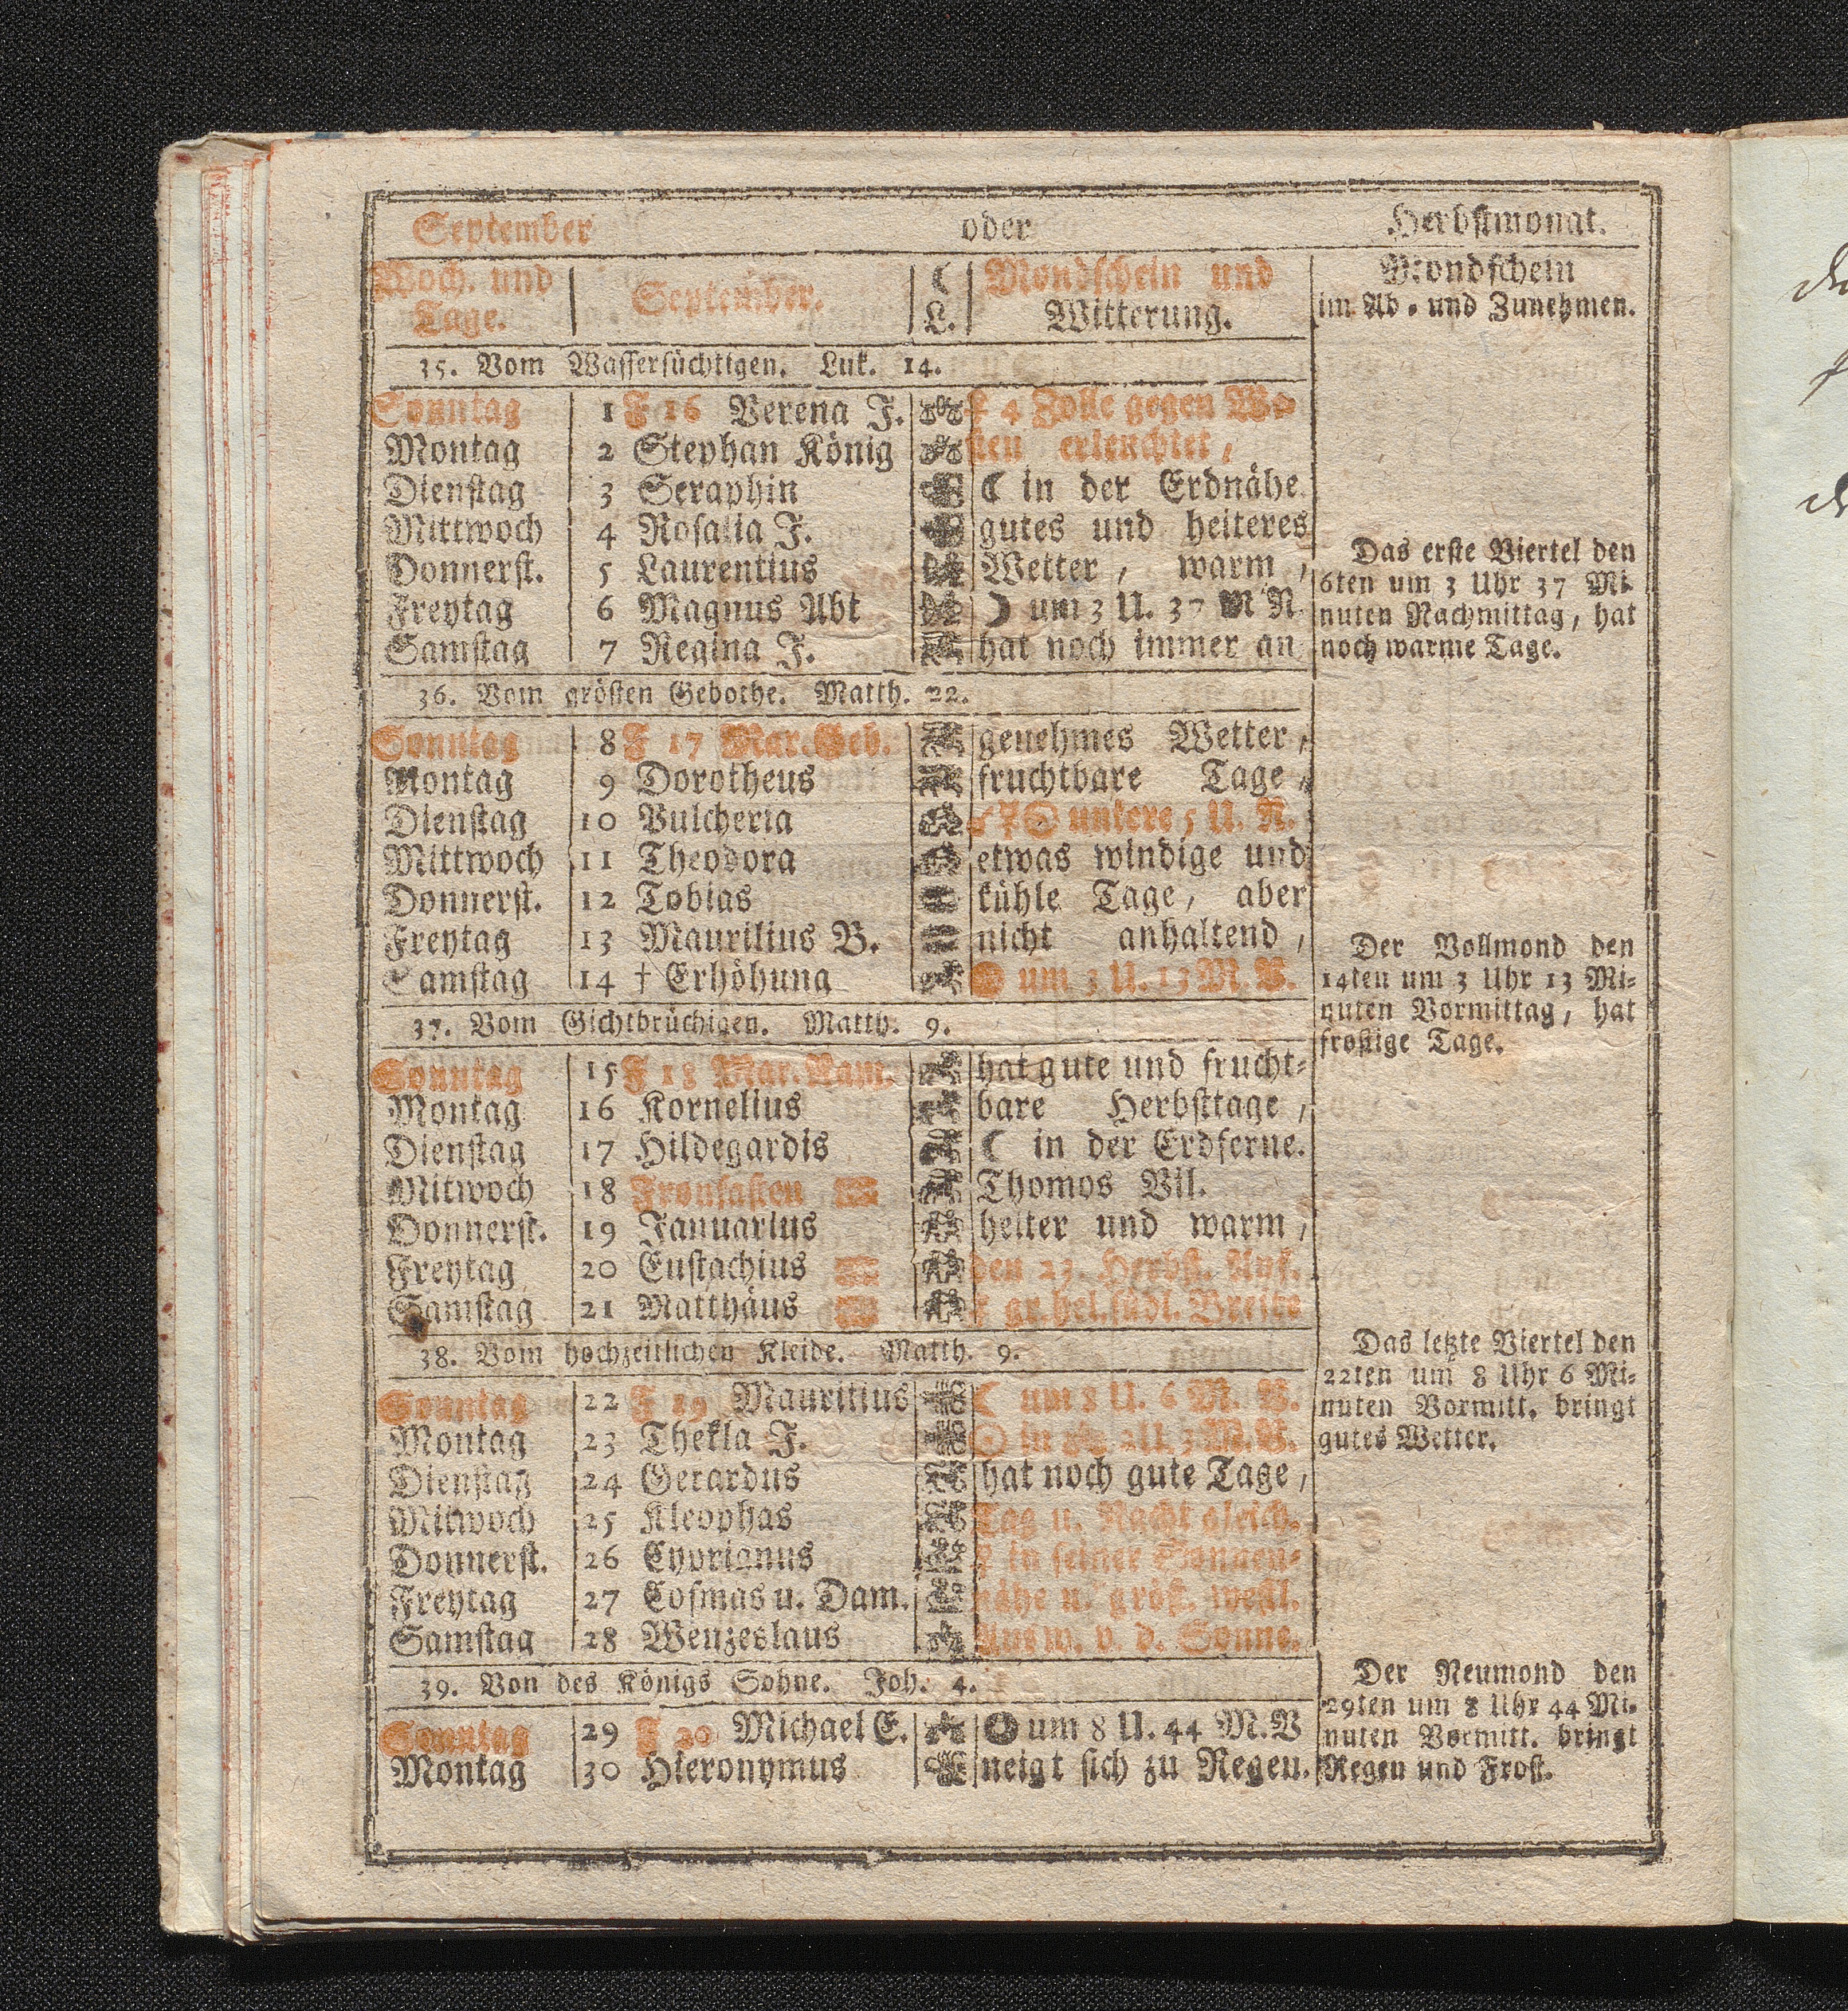 September oder Herbstmonat.
Woch. und Tage. September. ☾ L. Mondschein und Witterung.
Mondschein
im Ab- und Zunehmen.
35. Vom Wassersüchtigen. Luk. 14.
Sonntag 1 F 16 Verena J. ☿ 4 Zolle gegen We-
Montag 2 Stephan König sten erleuchtet,
Dienstag 3 Seraphin ☾ in der Erdnähe
Mittwoch 4 Rosalia J. gutes und heiteres
Donnerst. 5 Laurentius Wetter, warm,
Freytag 6 Magnus Abt ☽ um 3 U. 37 M N
Samstag 7 Regina J. hat noch immer an
36. Vom grösten Gebothe. Matth. 22.
Sonntag 8 F 17 Mar. Geb. genehmes Wetter,
Montag 9 Dorotheus fruchtbare Tage,
Dienstag 10 Pulcheria untere 5 U. N.
Mittwoch 11 Theodora etwas windige und
Donnerst. 12 Tobias kühle Tage, aber
Freytag 13 Maurilius B. nicht anhaltend,
Samstag 14 † Erhöhung um 3 U. 13 M. V.
37. Vom Gichtbrüchigen. Matth. 9.
Sonntag 15 F 18 Mar. Nam. hat gute und frucht-
Montag 16 Kornelius bare Herbsttage,
Dienstag 17 Hildegardis ☾ in der Erdferne.
Mitwoch 18 Fronfasten Thomos Vil.
Donnerst. 19 Januarius heiter und warm,
Freytag 20 Eustachius den 23. Herbst. Anf.
Samstag 21 Matthäus gr. hel. südl. Breite
38. Vom hochzeitlichen Kleide. Matth. 9.
Sonntag 22 F 19 Mauritius ☾ um 8 U. 6 M. V.
Montag 23 Thekla J. ☉ in 2 U. 3 M. V.
Dienstag 24 Gerardus hat noch gute Tage,
Mitwoch 25 Kleophas Tag u. Nacht gleich.
Donnerst. 26 Cyprianus ☿ in seiner Sonnen-
Freytag 27 Cosmas u. Dam. nähe u. gröst. westl.
Samstag 28 Wenzeslaus Ausw. v. d. Sonne.
39. Von des Königs Sohne. Joh. 4.
Sonntag 29 F 20 Michael E. um 8 U. 44 M. V
Montag 30 Hieronymus neigt sich zu Regen.
Das erste Viertel den
6ten um 3 Uhr 37 Mi-
nuten Nachmittag, hat
noch warme Tage.
Der Vollmond den
14ten um 3 Uhr 13 Mi-
nuten Vormittag, hat
frostige Tage.
Das letzte Viertel den
22ten um 8 Uhr 6 Mi-
nuten Vormitt. bringt
gutes Wetter.
Der Neumond den
29ten um 8 Uhr 44 Mi-
nuten Vormitt. bringt
Regen und Frost.